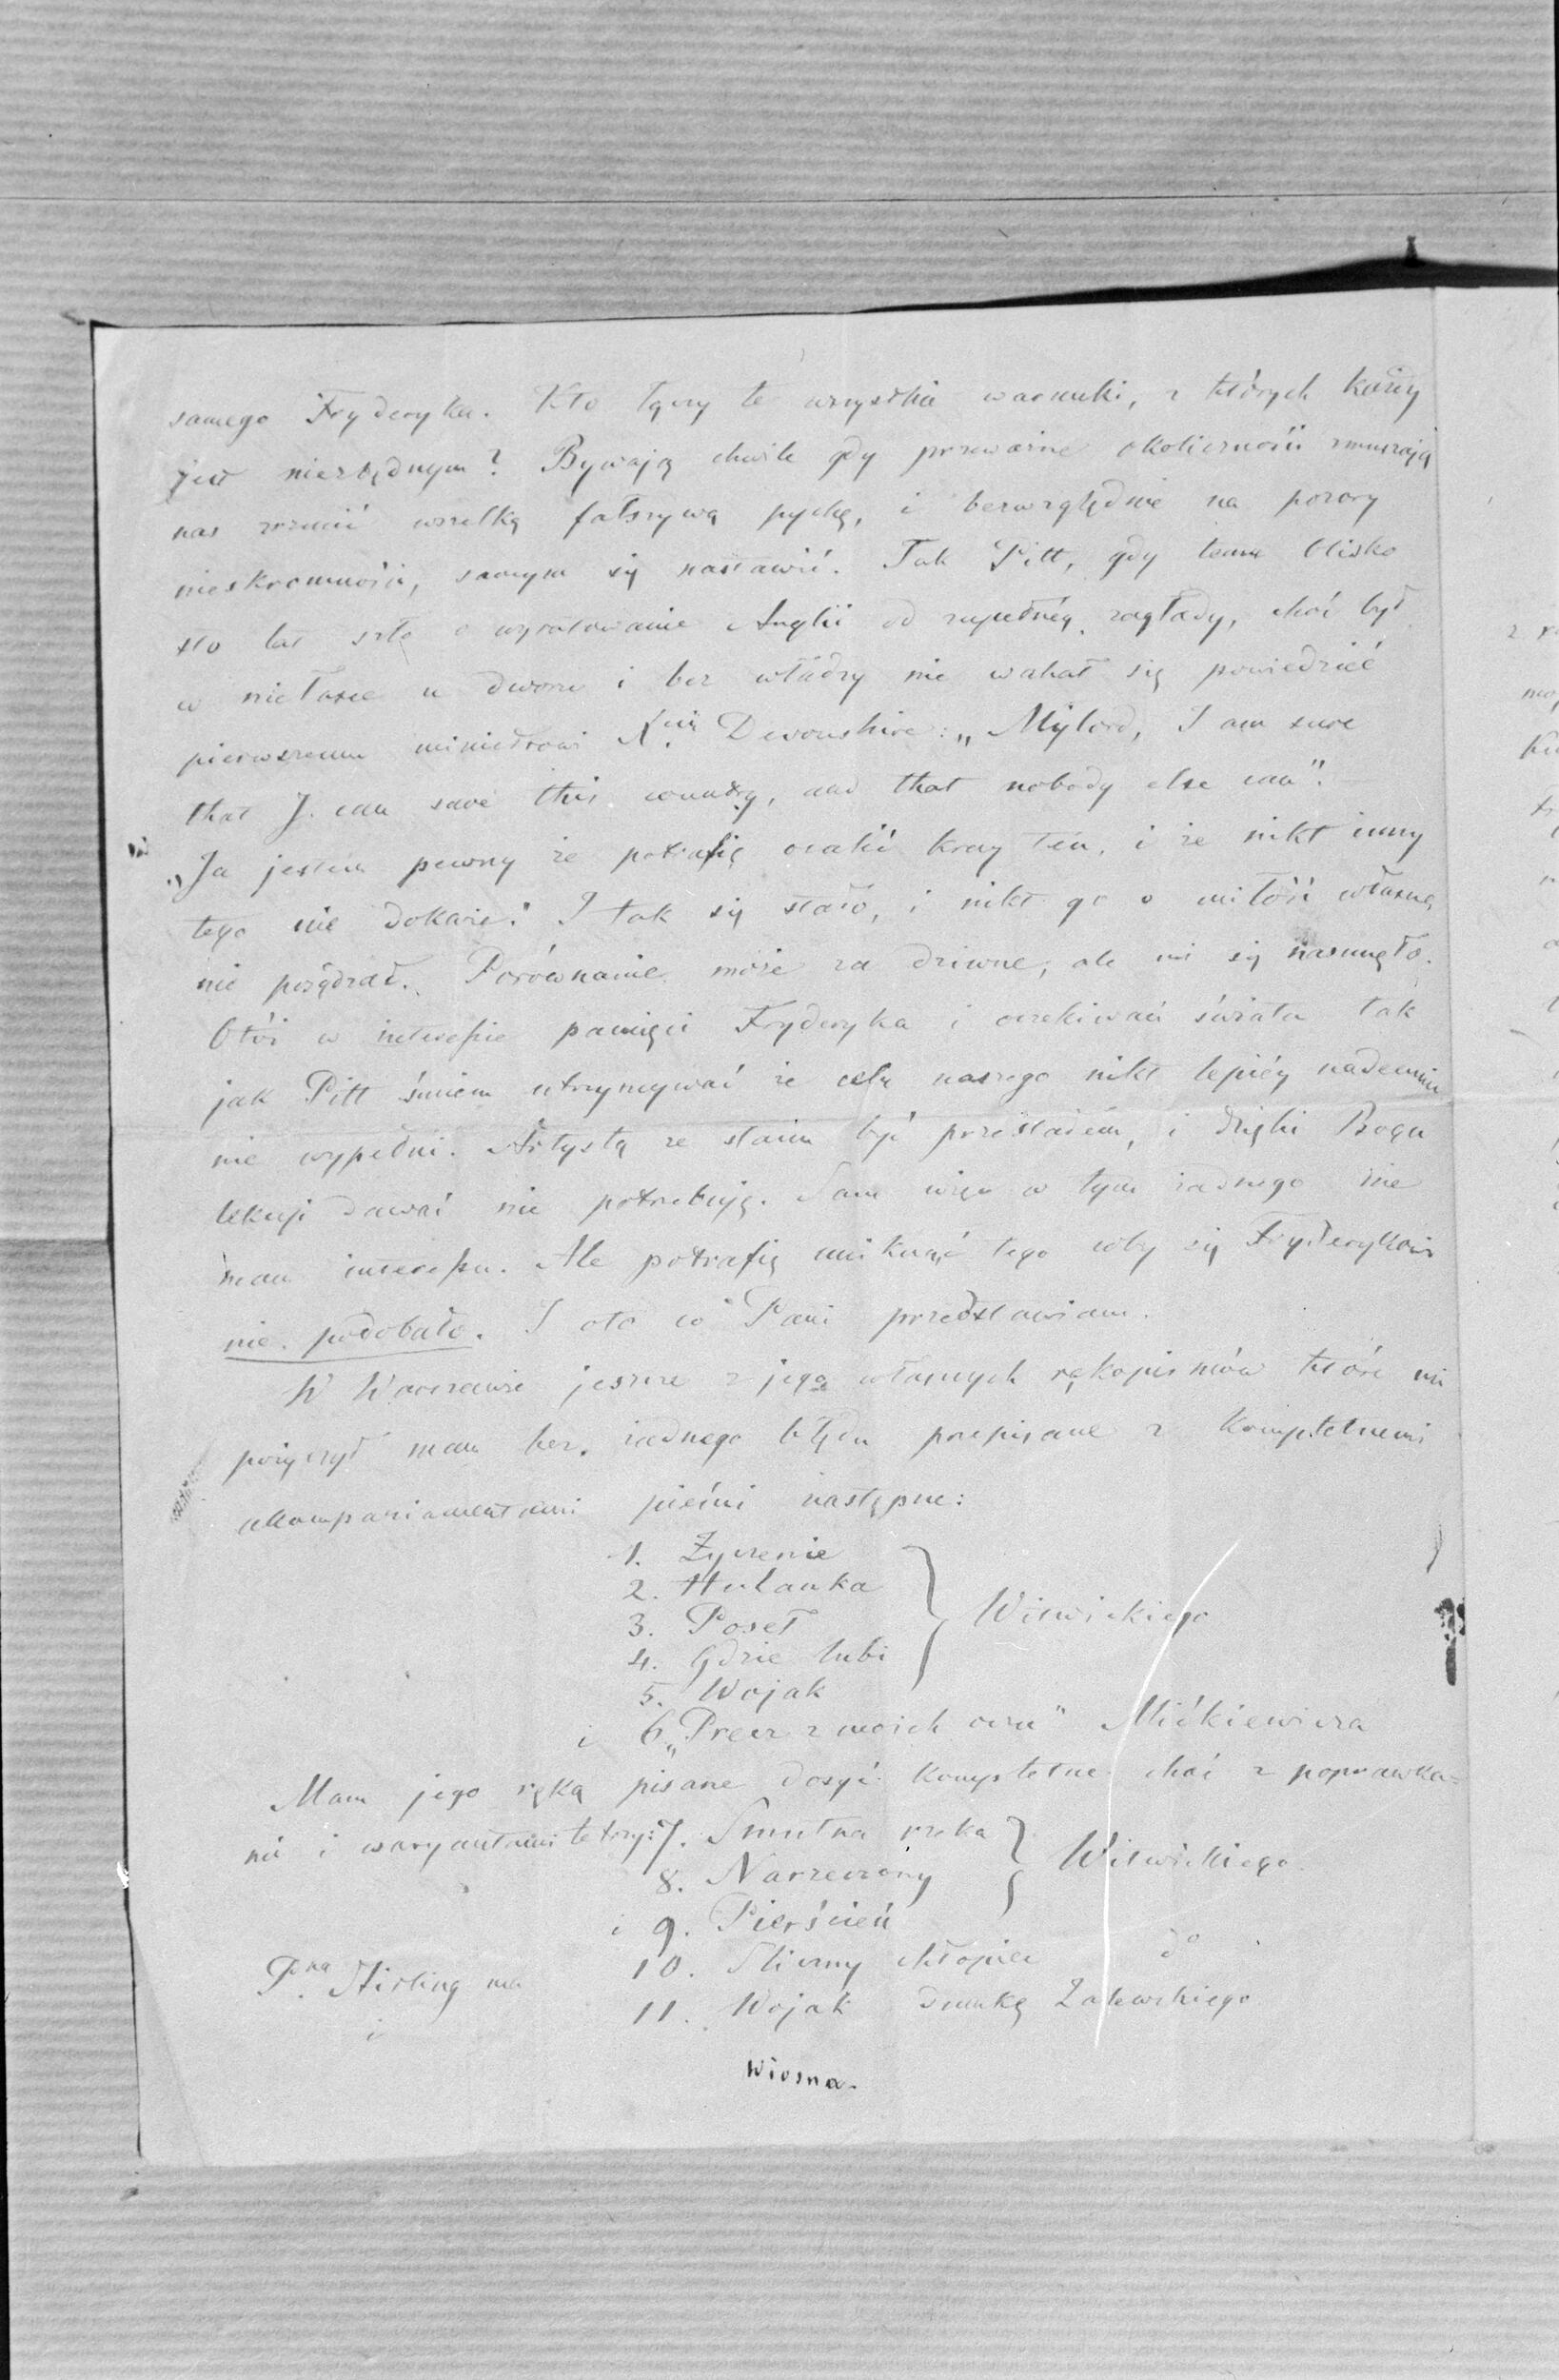 samego Fryderyka. Kto łączy te wszystkie warunki, z których każdy
jest niezbędnym? Bywają chwile gdy przeważne okoliczności zmuszają
nas zrzucić wszelką fałszywą pychę, i bezwzględnie na pozory
nieskromności, samym się nastawić. Tak Pitt, gdy temu blisko
sto lat szło o wyratowanie Anglii od zupełnéj zagłady, choć był
w niełasce u dworu i bez władzy nie wahał się powiedzieć
pierwszemu ministrowi Devonshire: „Mylord, I am sure
that J. can save this country, and that nobody else can".
„Ja jestem pewny że potrafię ocalić kray ten, i że nikt inny
tego nie dokaże." I tak się stało, i nikt go o miłość własną
nie posądzał. Porównanie może za dziwne, ale mi się nasunęło.
Otóż w interessie pamięci Fryderyka i oczekiwań świata tak
jak Pitt śmiem utrzymywać że celu naszego nikt lepiéy nademnie
nie wypełni. Artystą ze stanu być przestałem, i dzięki Bogu
lekcji dawać nie potrzebuję. Sam więc w tym żadnego nie
mam interessu. Ale potrafię uniknąć tego coby się Fryderykowi
nie podobało. I oto co Pani przedstawiam.
W Warszawie jeszcze z jego własnych rękopismów które mi
pożyczył mam bez żadnego błędu przepisane z kompletnemi
akompaniamentami pieśni następne:
1. Życzenie
2. Hulanka
3. Poseł
4. Gdzie lubi
Witwickiego
5. Wojak
i 6. „Precz z moich oczu" Mićkiewicza
Mam jego ręką pisane dosyć kompletne choć z poprawka=
mi i waryantami te trzy: 7. Smutna rzeka
8. Narzeczony
Witwickiego
i 9. Pierścień
Pna Stirling ma 10. Sliczny chłopiec do
i 11. Wojak dumkę Zaleskiego
Wiosna.